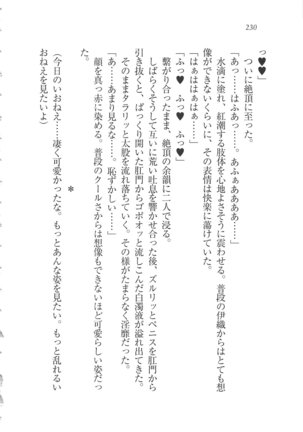 230
っ♥♥」
ついに絶頂に至った。
「あっ……はふぁっ……。あふぁぁぁぁ……」
水滴に塗れ、紅潮する肢体を心地よさそうに震わせる。普段の伊織からはとても想
像ができないくらいに、その表情は快楽に蕩けていた。
「ふっ♥　ふっ♥　ふっ♥」
「はぁはぁはぁはぁ……」
繋がり合ったまま、絶頂の余韻に二人で浸る。
しばらくそうして互いに荒い吐息を響かせ合った後、ズルリッとペニスを肛門から
引き抜くと、ぱっくり開いた肛門からゴポオッと流しこんだ白濁液が溢れ出てきた。
そのままタラリッと太股を流れ落ちていく。その様がたまらなく淫靡だった。
「あっ……あまり見るな……。恥ずかしい……」
顔を真っ赤に染める。普段のクールさからは想像もできないほど可愛らしい姿だっ
た。
＊
（今日のいおねえ……凄く可愛かったな。もっとあんな姿を見たい。もっと乱れるい
おねえを見たいよ）